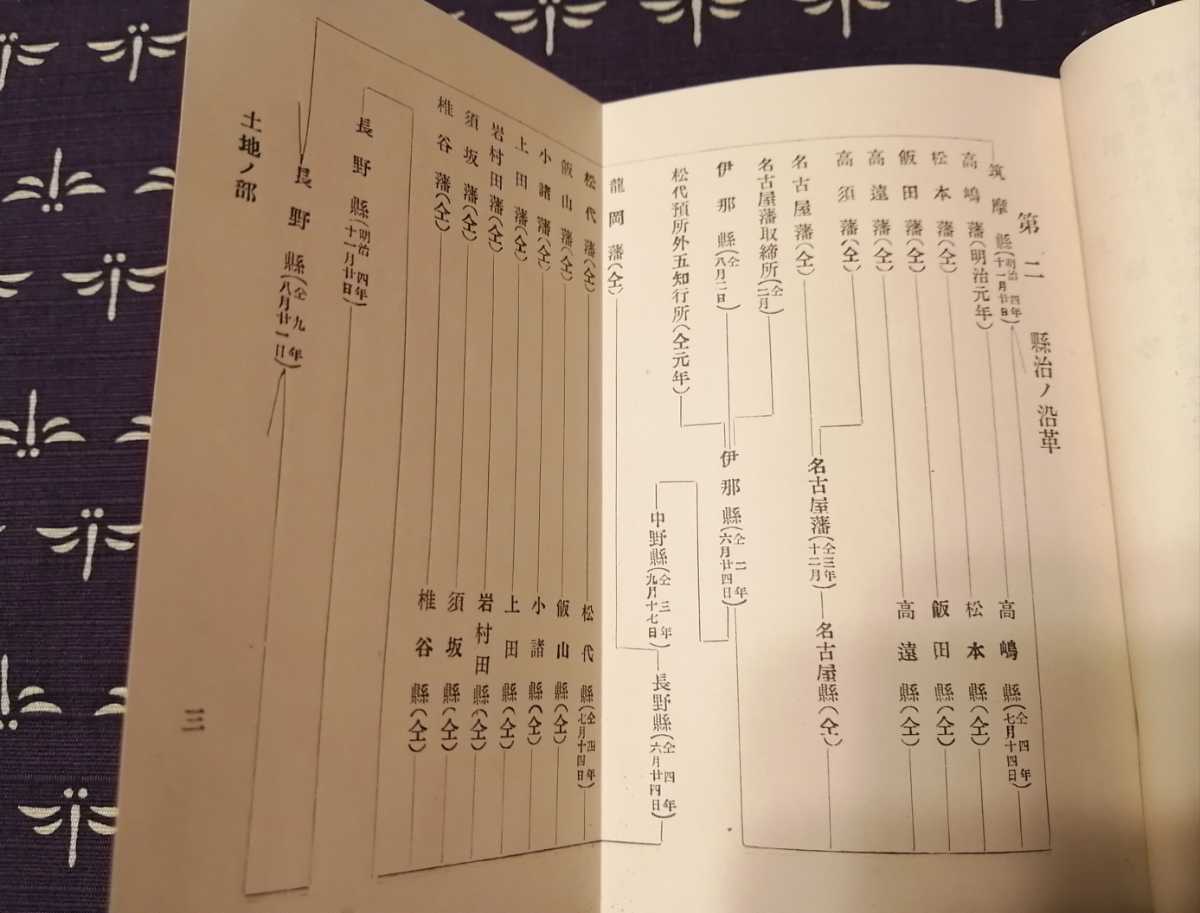 第二 縣治ノ沿革
筑摩縣(明治四年十一月廿日)
高嶋藩(明治元年)
高嶋縣(仝四年七月十四日)
松本藩(仝)
松本縣(仝)
飯田藩(仝)
飯田縣(仝)
高遠藩(仝)
高遠縣(仝)
高須藩(仝)
名古屋藩(仝)
名古屋藩(仝三年十二月)
名古屋縣(仝)
名古屋藩取締所(仝二月)
伊那縣(仝八月二日)
伊那縣(仝二年六月廿四日)
松代預所外五知行所(仝元年)
中野縣(仝三年九月十七日)
長野縣(仝四年六月廿四日)
龍岡藩(仝)
松代藩(仝)
松代縣(仝四年七月十四日)
飯山藩(仝)
飯山縣(仝)
小諸藩(仝)
小諸縣(仝)
上田藩(仝)
上田縣(仝)
岩村田藩(仝)
岩村田縣(仝)
須坂藩(仝)
須坂縣(仝)
椎谷藩(仝)
椎谷縣(仝)
長野縣(明治四年十一月廿日)
長野縣(仝九年八月廿一日)
土地ノ部
三